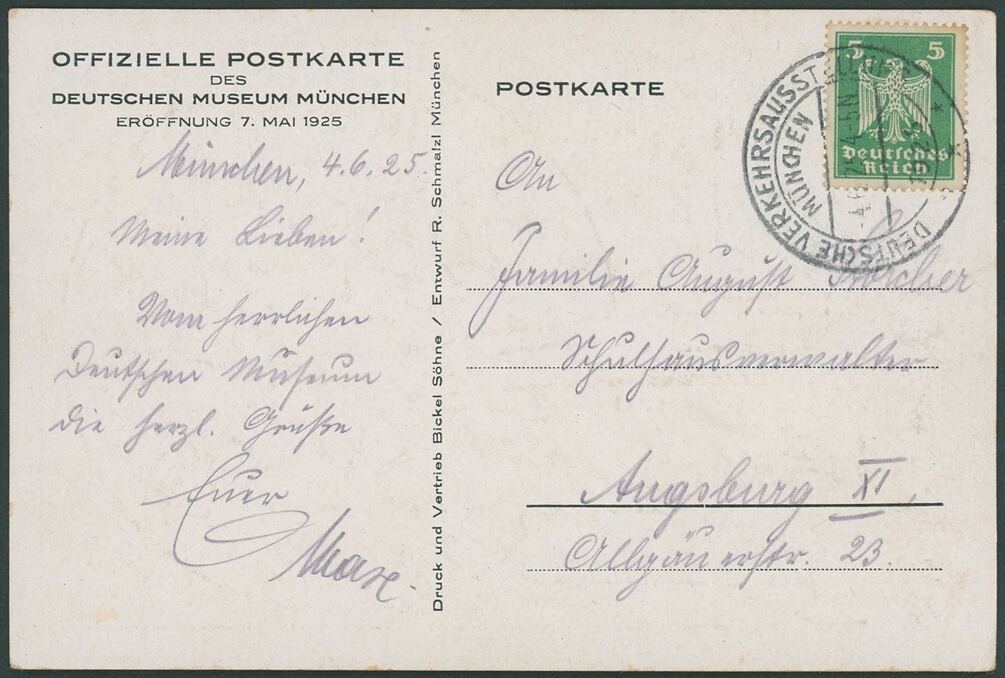 OFFIZIELLE POSTKARTE
DES
DEUTSCHEN MUSEUM MÜNCHEN
ERÖFFNUNG 7. MAI 1925
München, 4.6.25.
Meine Lieben!
Vom herrlichen
Deutschen Museum
die herzl. Grüße
Euer
Max.
Druck und Vertrieb Bickel Söhne / Entwurf R. Schmalzl München
POSTKARTE
5 5
Deutsches
Reich
DEUTSCHE VERKEHRSAUSSTELLUNG
MÜNCHEN
An
Familie August
Schulhausverwalter
Augsburg XI,
Allgäuerstr. 23.